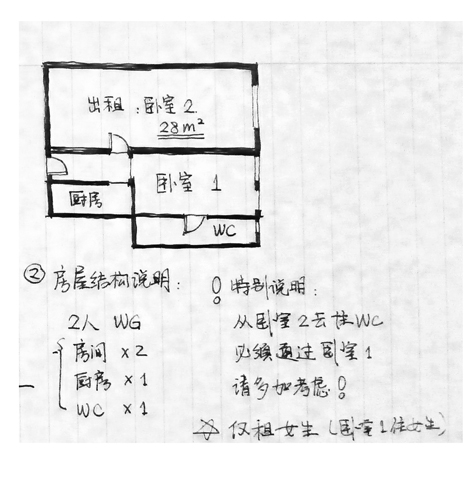 出租:卧室 2
28m²
卧室 1
厨房
WC
② 房屋结构说明:
2人 WG
房间 ×2
厨房 ×1
WC ×1
特别说明:
从卧室2去往WC
必须通过卧室1
请多加考虑!
仅租女生(卧室1住女生)